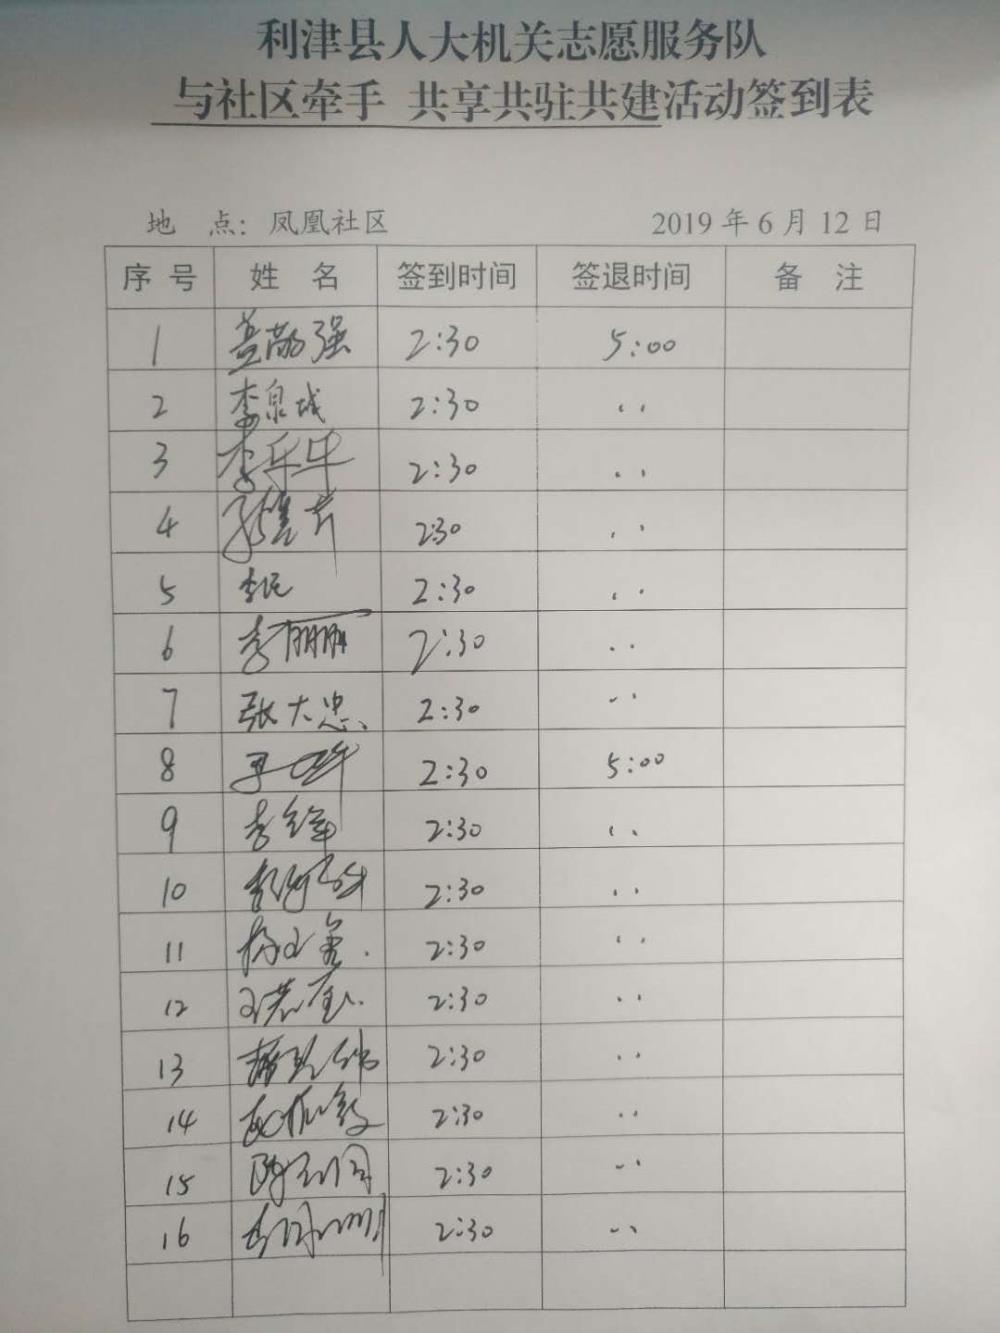 利津县人大机关志愿服务队
与社区牵手 共享共驻共建活动签到表
地 点：凤凰社区 2019年6月12日
序号 姓名 签到时间 签退时间 备注
1 盖敬强 2:30 5:00
2 李泉城 2:30 〃
3 李乐华 2:30 〃
4 2:30 〃
5 李民 2:30 〃
6 李丽丽 2:30 〃
7 张大忠 2:30 〃
8 2:30 5:00
9 李军 2:30 〃
10 2:30 〃
11 2:30 〃
12 2:30 〃
13 2:30 〃
14 2:30 〃
15 2:30 〃
16 2:30 〃